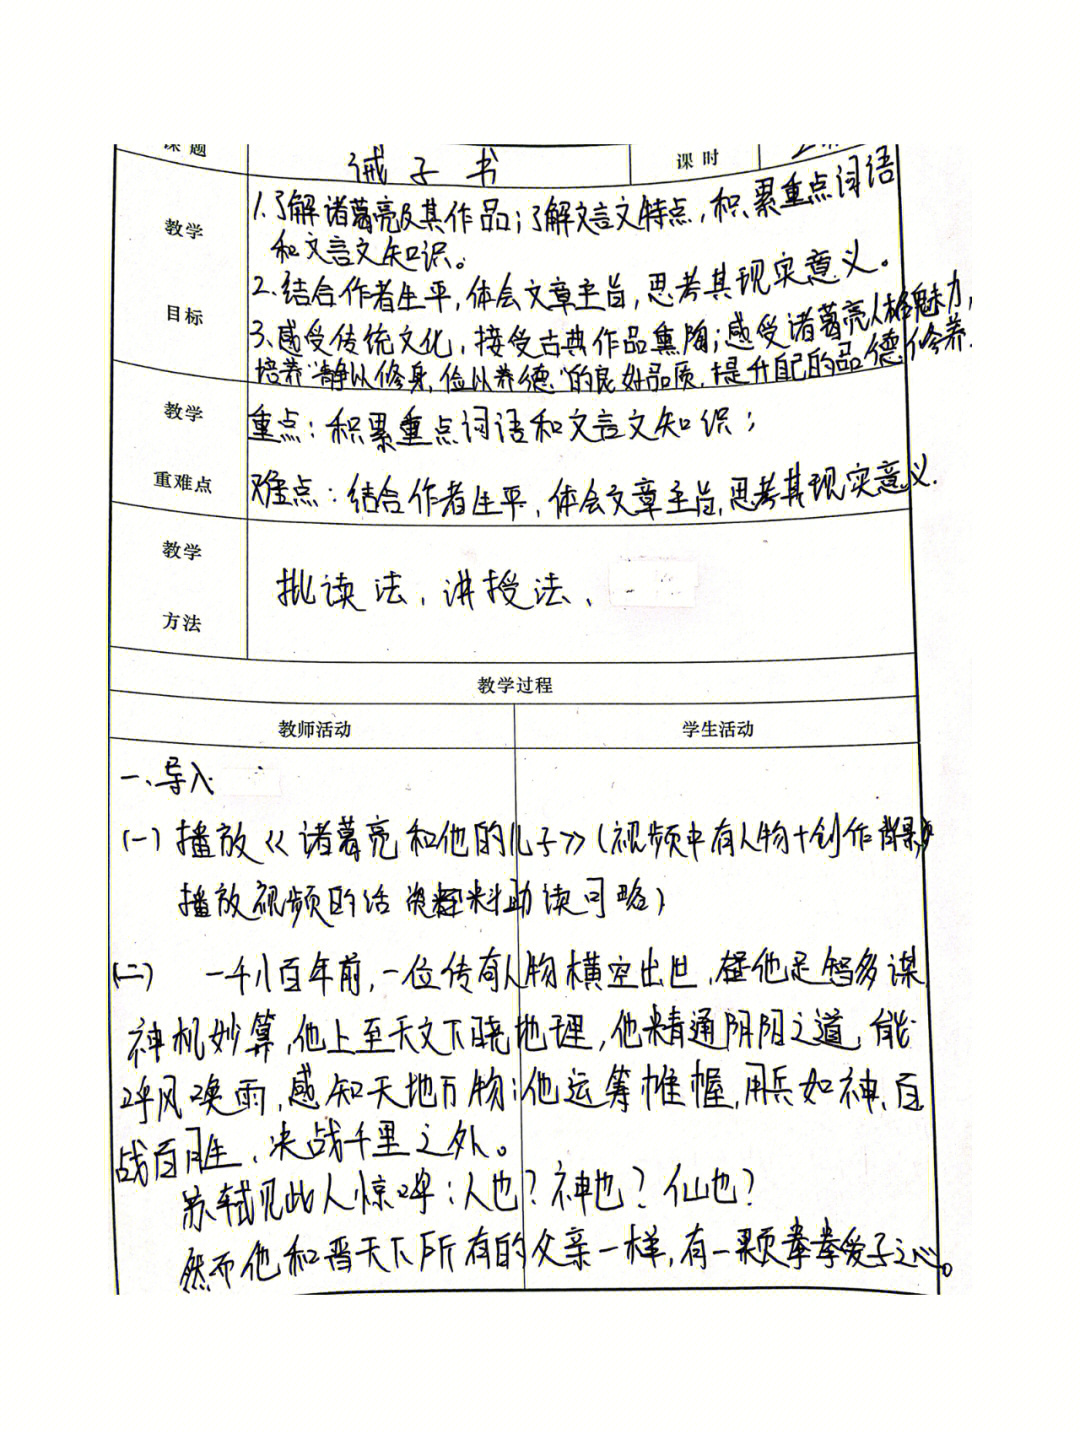 课题 诫子书 课时
教学目标
1.了解诸葛亮及其作品；了解文言文特点，积累重点词语
和文言文知识。
2.结合作者生平，体会文章主旨，思考其现实意义。
3.感受传统文化，接受古典作品熏陶；感受诸葛亮人格魅力，
培养“静以修身，俭以养德”的良好品质，提升自己的品德修养.
教学重难点
重点：积累重点词语和文言文知识；
难点：结合作者生平，体会文章主旨，思考其现实意义.
教学方法
批读法、讲授法、
教学过程
教师活动 学生活动
一、导入
(一) 播放《诸葛亮和他的儿子》(视频中有人物+创作背景,
播放视频的话 资料助读可略)
(二) 一千八百年前，一位传奇人物横空出世，他足智多谋
神机妙算，他上至天文下晓地理，他精通阴阳之道，能
呼风唤雨，感知天地万物；他运筹帷幄，用兵如神，百
战百胜，决战千里之外。
苏轼见此人惊呼：人也？神也？仙也？
然而他和普天下所有的父亲一样，有一颗拳拳爱子之心。